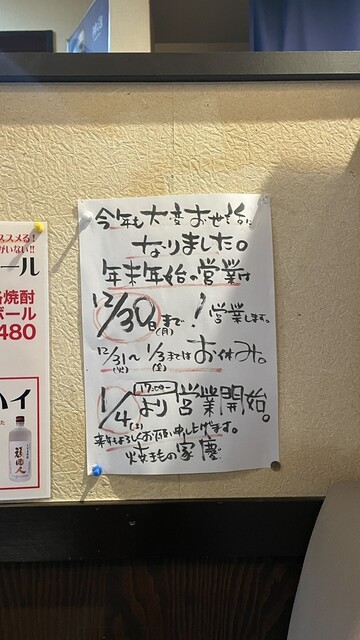 今年も大変お世話に
なりました。
年末年始の営業は
12/30日(月)まで!営業します。
12/31(火)〜1/3(金)まではお休み。
1/4(土)17:00〜より営業開始。
来年もよろしくお願い申し上げます。
焼きもの家 慶
ススメる!
がいない!!
ール
焼酎
ボール
480
ハイ